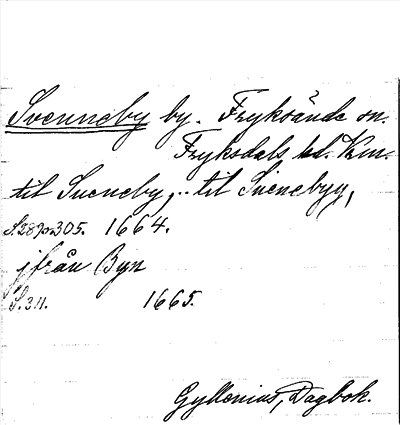 Svenneby by. Fryksände sn.
Fryksdals hd. Krm.
til Sueneby, .. til Svenebyy,
S.289, 305. 1664.
ifrån Byn
S. 311. 1665.
Gyllenius, Dagbok.